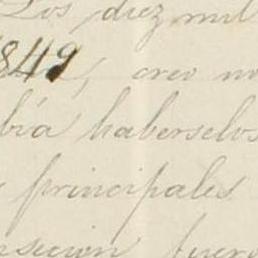 Los diez mil
1849, creo no
bía haberselos
principales
sicion fuera